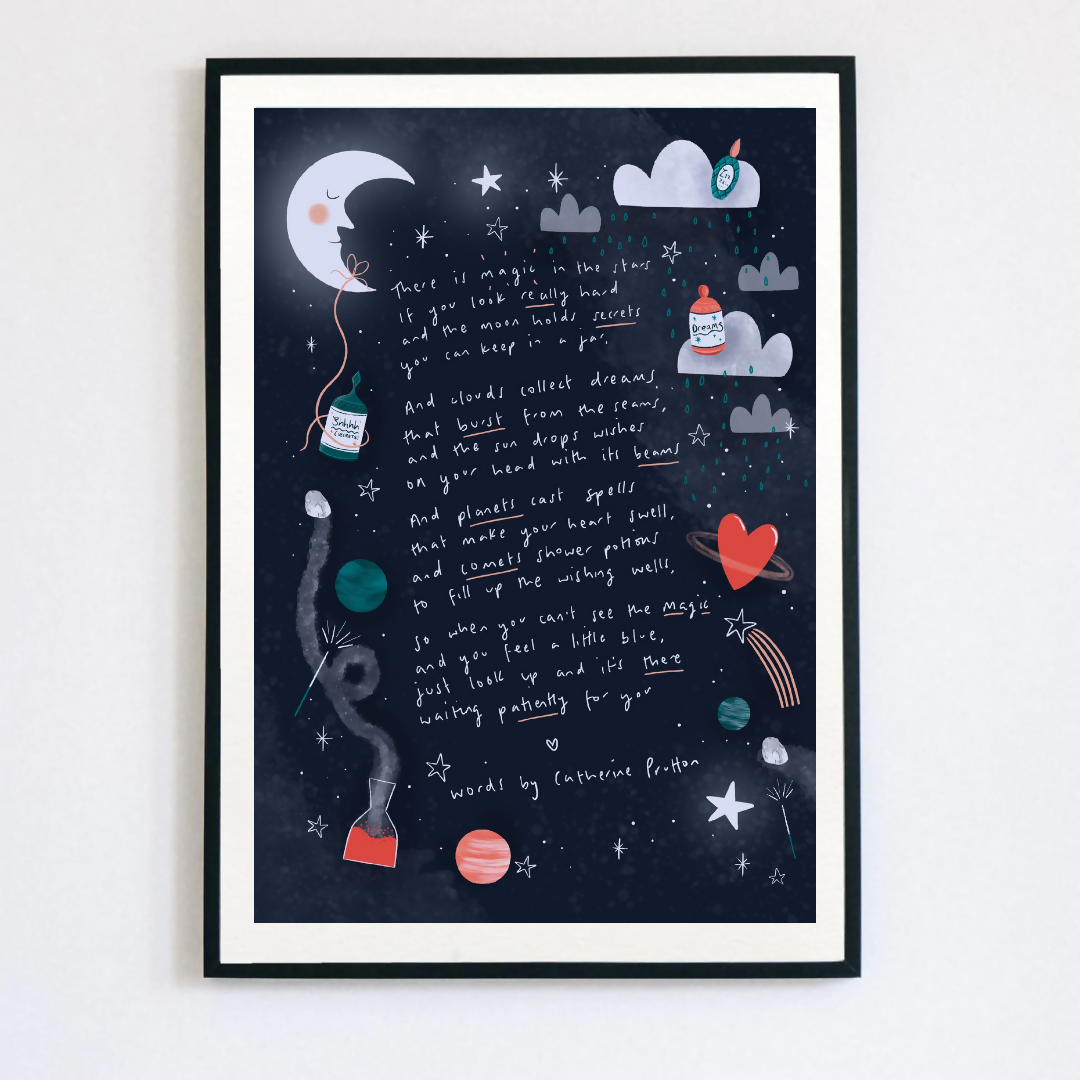 There is magic in the stars
If you look really hard
and the moon holds secrets
you can keep in a jar.
And clouds collect dreams
that burst from the seams,
and the sun drops wishes
on your head with its beams
And planets cast spells
that make your heart swell,
and comets shower potions
to fill up the wishing wells,
so when you can't see the magic
and you feel a little blue,
just look up and it's there
waiting patiently for you
words by Catherine Prutton
Dreams
Shhhh
secrets